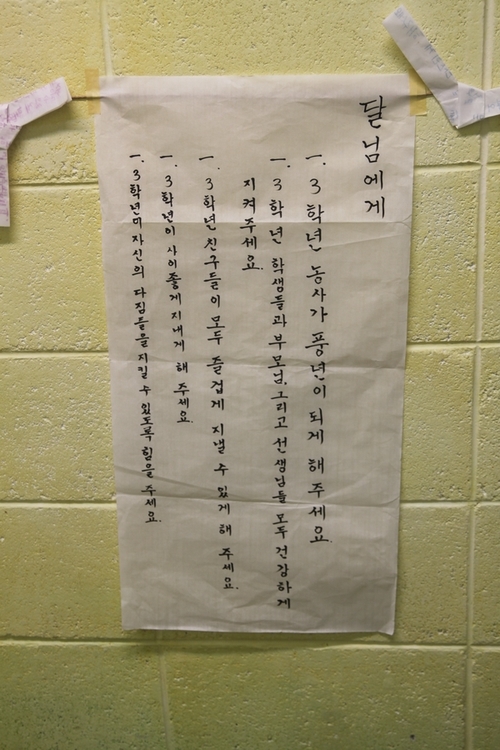 달님에게
一. 3학년 농사가 풍년이 되게 해 주세요.
一. 3학년 학생들과 부모님, 그리고 선생님들 모두 건강하게
지켜 주세요.
一. 3학년 친구들이 모두 즐겁게 지낼 수 있게 해 주세요.
一. 3학년이 사이좋게 지내게 해 주세요.
一. 3학년이 자신의 다짐들을 지킬 수 있도록 힘을 주세요.